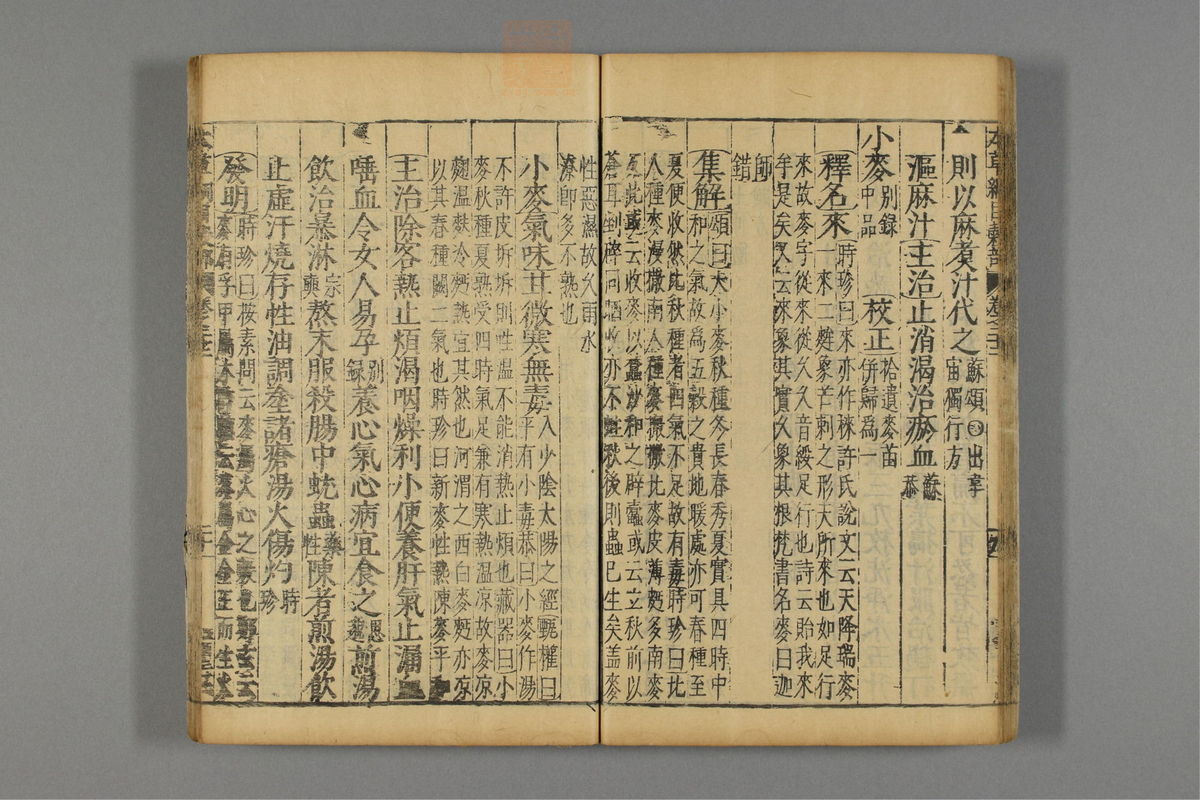 則以麻煮汁代之蘇頌○出韋
宙獨行方
漚麻汁主治止消渴治瘀血蘇
恭
小麥別錄
中品校正拾遺麥苗
併歸為一
釋名來時珍曰來亦作秾許氏說文云天降瑞麥
一來二麰象芒刺之形天所來也如足行
來故麥字從來從夂夂音綏足行也詩云貽我來
牟是矣又云來象其實夂象其根梵書名麥曰迦
師
錯
集解頌曰大小麥秋種冬長春秀夏實具四時中
和之氣故為五穀之貴地暖處亦可春種至
夏便收然比秋種者四氣不足故有毒時珍曰北
人種麥漫撒南人種麥撮撒北麥皮薄麪多南麥
反此或云收麥以蠶沙和之辟蠹或云立秋前以
蒼耳剉碎同晒收亦不蛀秋後則蟲已生矣蓋麥
性惡濕故久雨水
潦即多不熟也
小麥氣味甘微寒無毒入少陰太陽之經甄權曰
平有小毒恭曰小麥作湯
不許皮坼坼則性溫不能消熱止煩也藏器曰小
麥秋種夏熟受四時氣足兼有寒熱溫凉故麥凉
麴溫麩冷麪熱宜其然也河渭之西白麥麪亦凉
以其春種闕二氣也時珍曰新麥性熱陳麥平
主治除客熱止煩渴咽燥利小便養肝氣止漏血
唾血令女人易孕別
錄養心氣心病宜食之思
邈煎湯
飲治暴淋宗
奭熬末服殺腸中蚘蟲藥
性陳者煎湯飲
止虛汗燒存性油調塗諸瘡湯火傷灼時
珍
發明時珍曰按素問云麥屬火心之穀也鄭玄云
麥有孚甲屬木許慎云麥屬金金王而生火